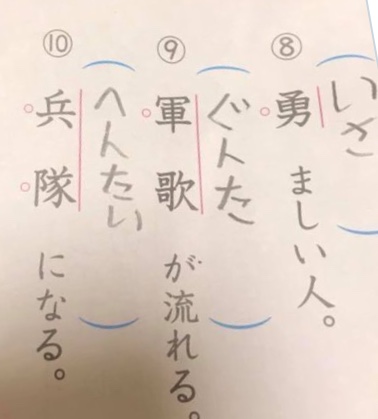 ⑧
いさ
勇ましい人。
⑨
ぐんた
軍歌が流れる。
⑩
へんたい
兵隊になる。